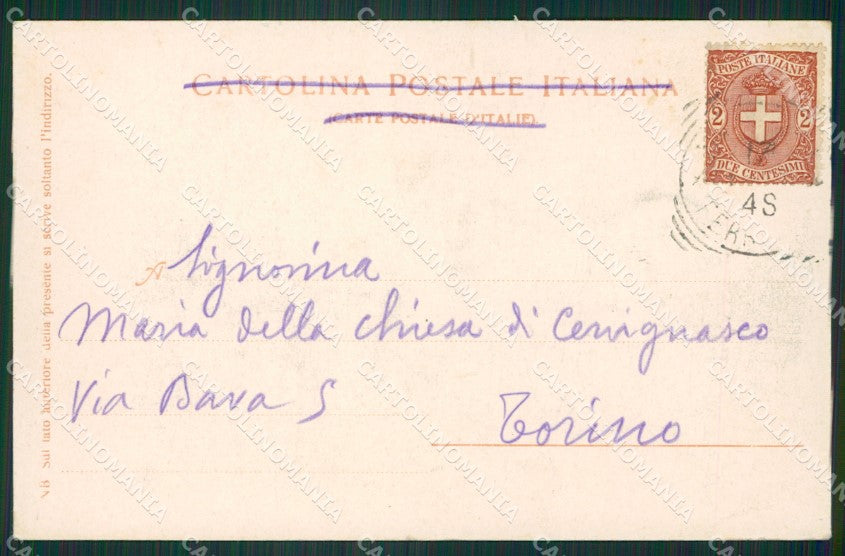 CARTOLINA POSTALE ITALIANA
(CARTE POSTALE D'ITALIE).
POSTE ITALIANE
2 2
DUE CENTESIMI
12
4S
FERR
A Signorina
Maria della Chiesa di Cervignasco
Via Bava 5
Torino
NB Sul lato anteriore della presente si scrive soltanto l'indirizzo.
CARTOLINOMANIA